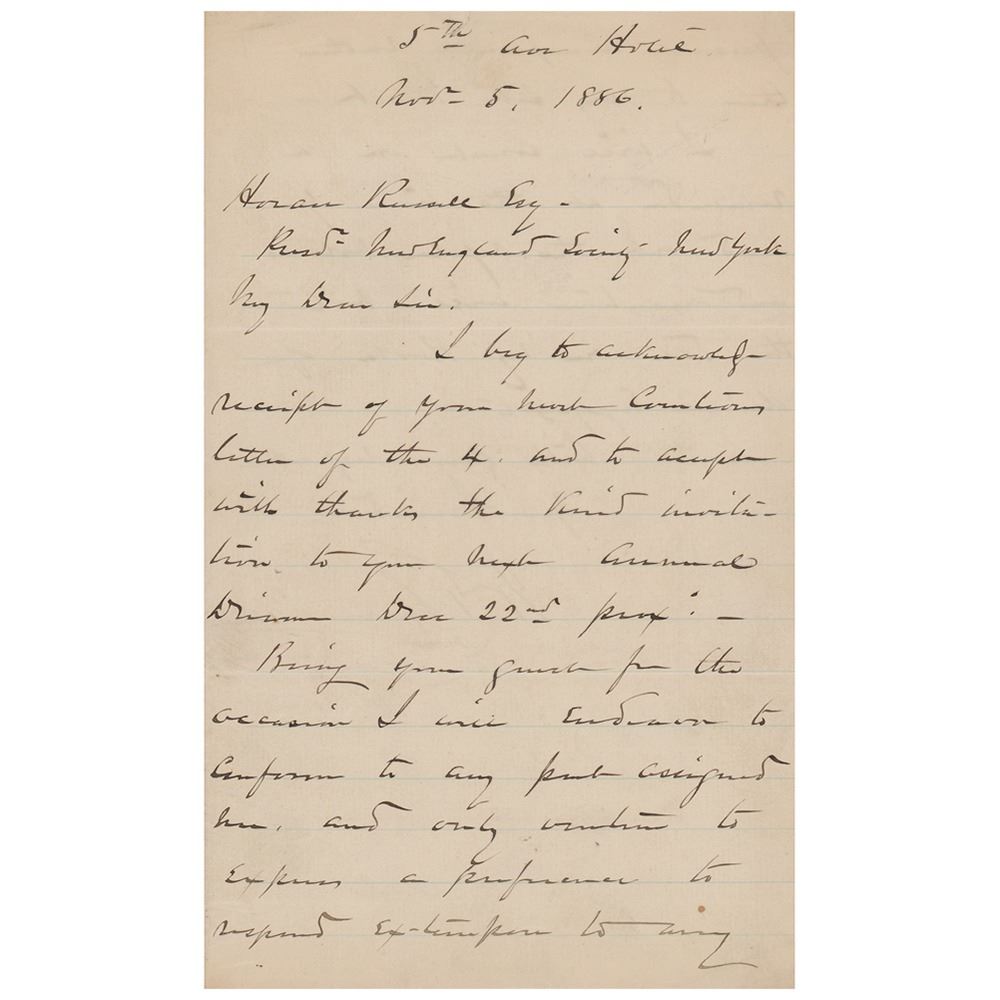 5th Ave Hotel
Nov- 5, 1886.
Horace Russell Esq-
Presdt New England Society New York
My Dear Sir.
I beg to acknowledge
receipt of your most Courteous
letter of the 4. and to accept
with thanks the Kind invita-
tion to your next Annual
Dinner Dec 22nd prox: -
Being your guest for the
occasion I will Endeavor to
Conform to any part assigned
me, and only venture to
Express a preference to
respond Ex-tempore to any